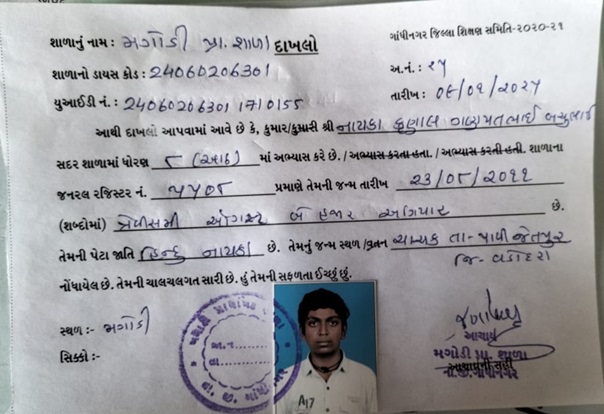 શાળાનું નામ : મગોડી પ્રા. શાળા દાખલો
ગાંધીનગર જિલ્લા શિક્ષણ સમિતિ-૨૦૨૦-૨૧
શાળાનો ડાયસ કોડ : 24060206301
અ.નં. : ૨૫
યુઆઈડી નં. : 24060206301 1710155
તારીખ : ૦૯/૦૧/૨૦૨૫
આથી દાખલો આપવામાં આવે છે કે, કુમાર/કુમારી શ્રી નાયકા કુણાલ ગણપતભાઈ
સદર શાળામાં ધોરણ ૮ (આઠ) માં અભ્યાસ કરે છે. / અભ્યાસ કરતા હતા. / અભ્યાસ કરતી હતી. શાળાના
જનરલ રજિસ્ટર નં. ૫૫૦૮ પ્રમાણે તેમની જન્મ તારીખ ૨૩/૦૮/૨૦૧૧
(શબ્દોમાં) ત્રેવીસમી ઓગસ્ટ બે હજાર અગિયાર છે.
તેમની પેટા જાતિ હિન્દુ નાયકા છે. તેમનું જન્મ સ્થળ /વતન તા- પાવીજેતપુર
જિ- વડોદરા
નોંધાયેલ છે. તેમની ચાલચલગત સારી છે. હું તેમની સફળતા ઈચ્છું છું.
સ્થળ :- મગોડી
સિક્કો :-
અ.નં.
તા.
A17
આચાર્ય
મગોડી પ્રા. શાળા
આચાર્યની સહી
તા.જી.ગાંધીનગર